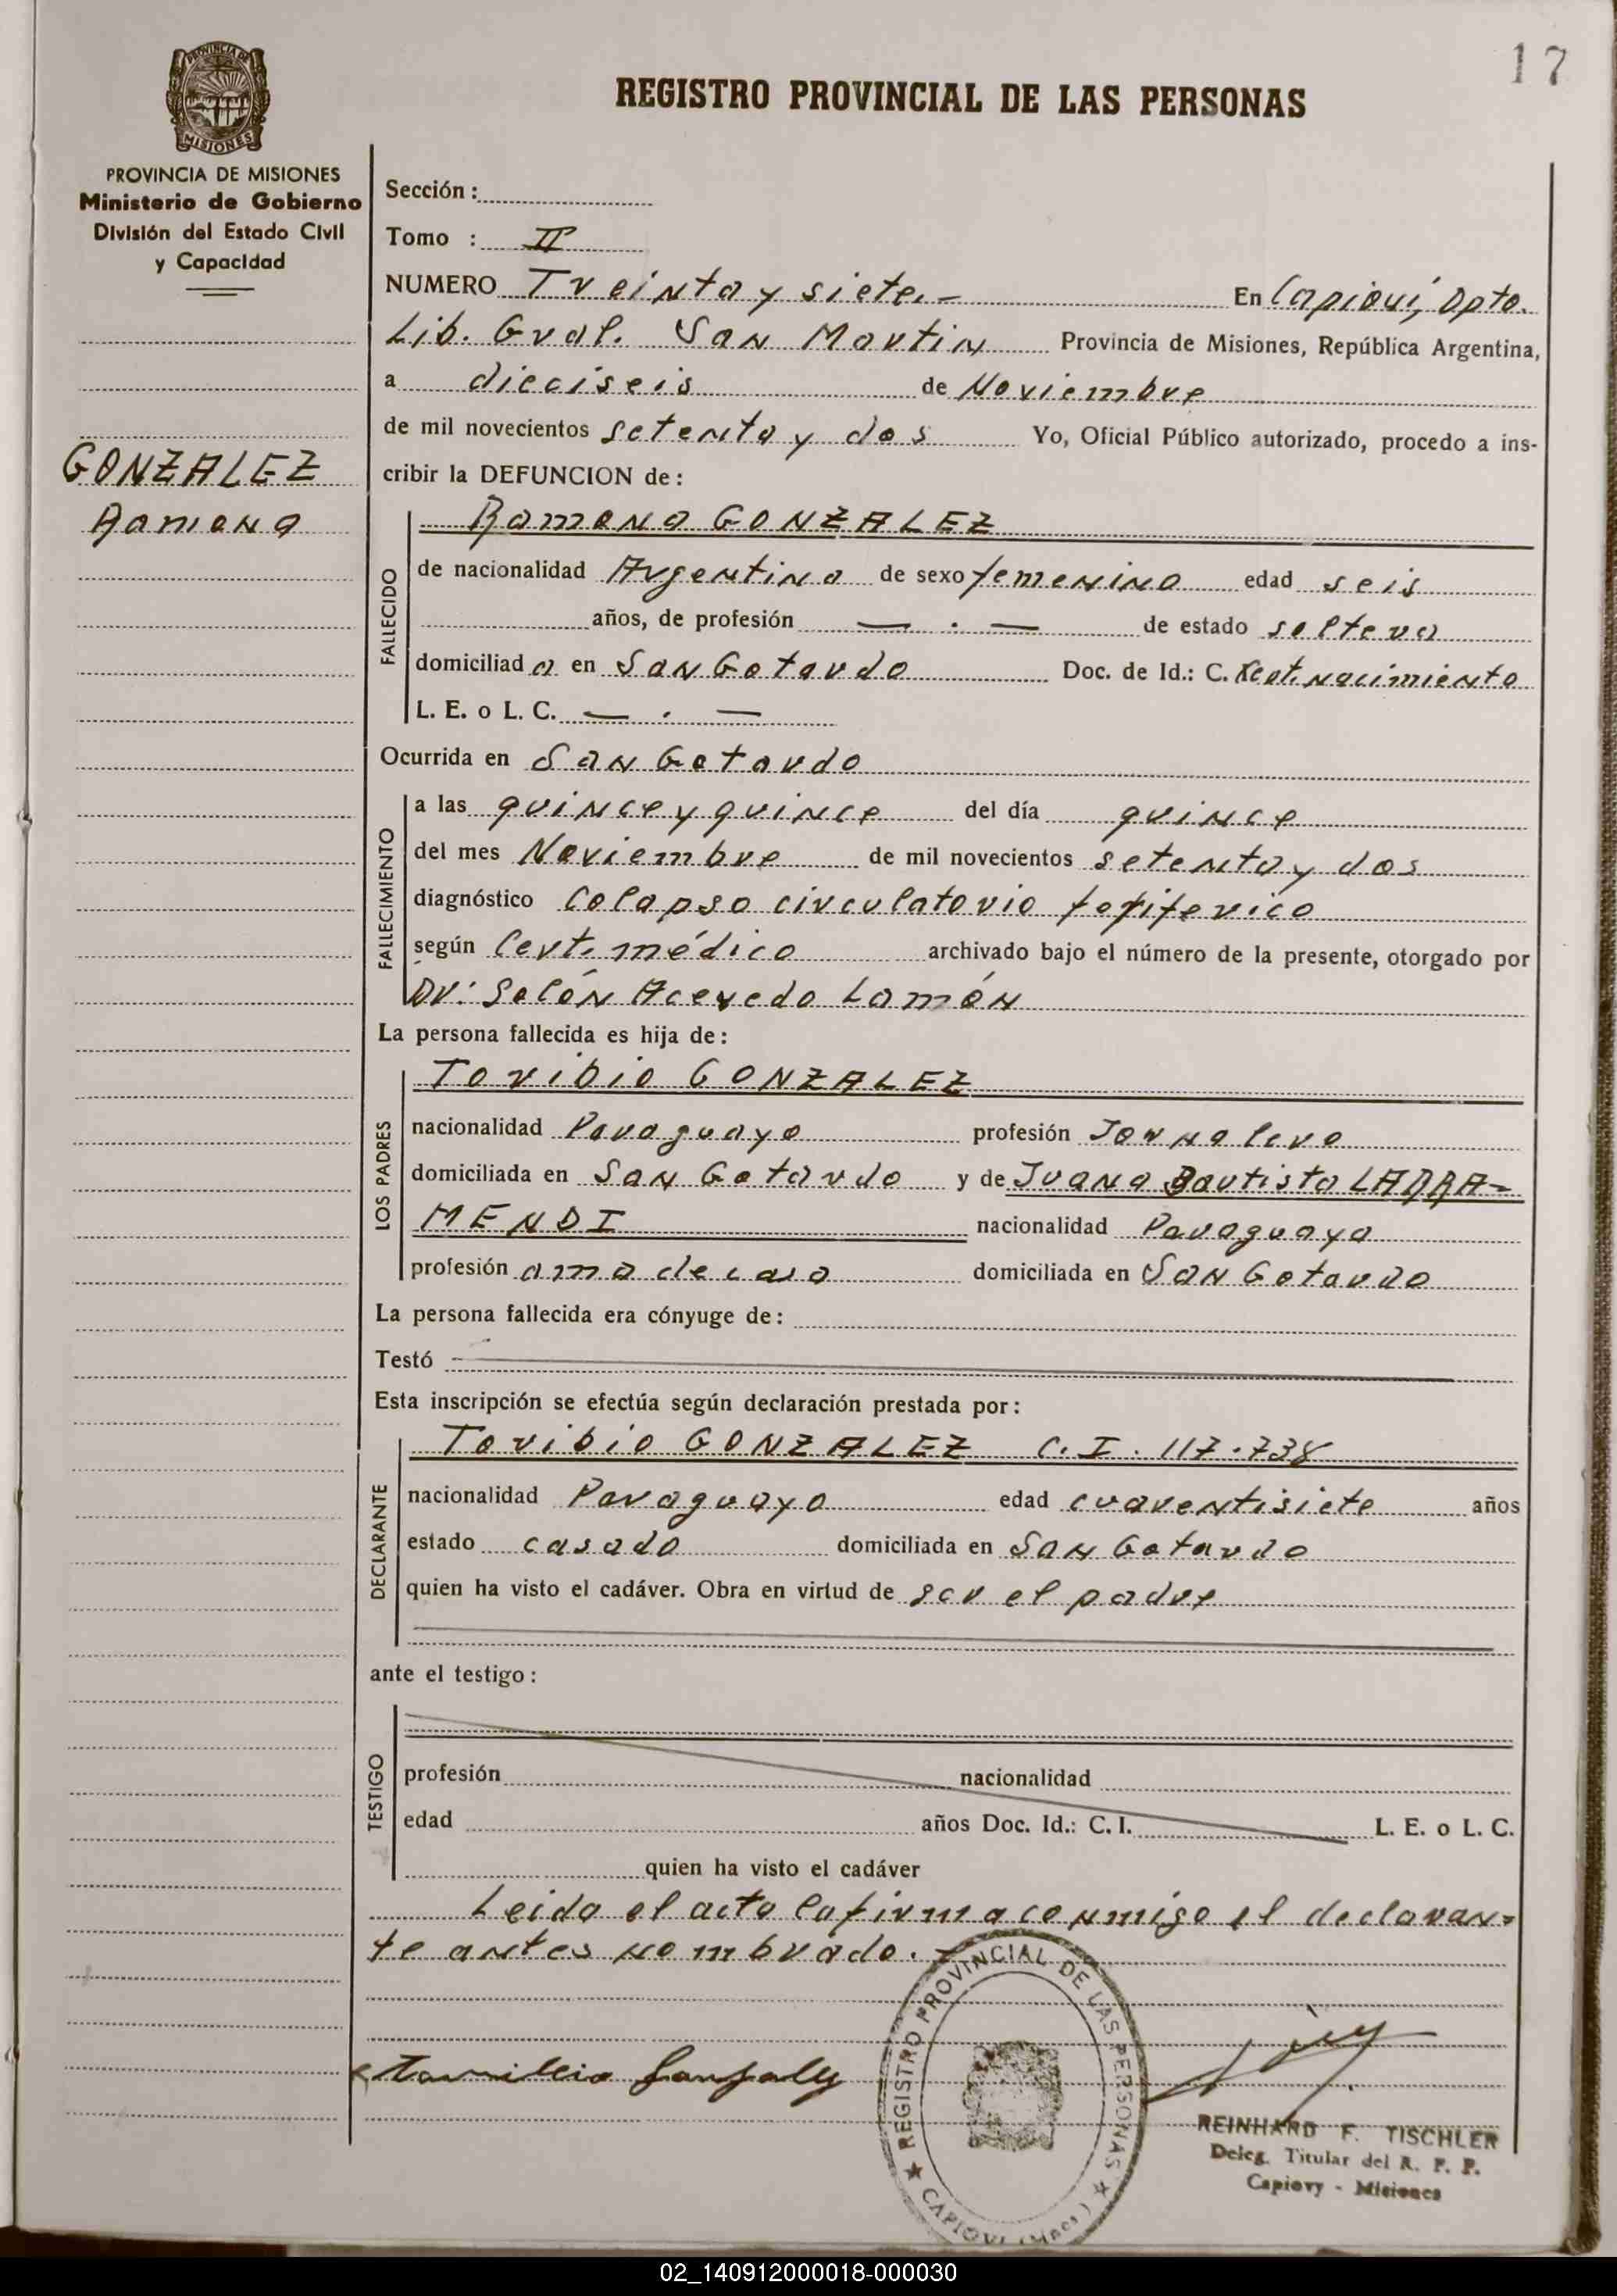 17
REGISTRO PROVINCIAL DE LAS PERSONAS
PROVINCIA DE MISIONES
PROVINCIA DE MISIONES
Ministerio de Gobierno
División del Estado Civil
y Capacidad
GONZALEZ
Ramona
Sección :
Tomo : II
NUMERO Treinta y siete.- En Capioví, Dpto.
Lib. Gral. San Martin Provincia de Misiones, República Argentina,
a dieciseis de Noviembre
de mil novecientos setenta y dos Yo, Oficial Público autorizado, procedo a ins-
cribir la DEFUNCION de :
FALLECIDO
Ramona GONZALEZ
de nacionalidad Argentina de sexo femenino edad seis
años, de profesión — . — de estado soltera
domiciliad a en San Gotardo Doc. de Id.: C. nacimiento
L. E. o L. C. — . —
Ocurrida en San Gotardo
FALLECIMIENTO
a las quince y quince del día quince
del mes Noviembre de mil novecientos setenta y dos
diagnóstico Colapso circulatorio
según Cert. médico archivado bajo el número de la presente, otorgado por
Dr: Solón Acevedo Lamón
La persona fallecida es hija de :
LOS PADRES
Toribio GONZALEZ
nacionalidad Paraguayo profesión Jornalero
domiciliada en San Gotardo y de Juana Bautista LARRA-
MENDI nacionalidad Paraguaya
profesión ama de casa domiciliada en San Gotardo
La persona fallecida era cónyuge de :
Testó
Esta inscripción se efectúa según declaración prestada por :
DECLARANTE
Toribio GONZALEZ C. I. 117.738
nacionalidad Paraguayo edad cuarentisiete años
estado casado domiciliada en San Gotardo
quien ha visto el cadáver. Obra en virtud de ser el padre
ante el testigo :
TESTIGO
profesión nacionalidad
edad años Doc. Id.: C. I. L. E. o L. C.
quien ha visto el cadáver
Leida el acta la firma conmigo el declaran-
te antes nombrado.-
REGISTRO PROVINCIAL DE LAS PERSONAS
CAPIOVI (Mnes)
REINHARD F. TISCHLER
Deleg. Titular del R. P. P.
Capiovy - Misiones
02_140912000018-000030